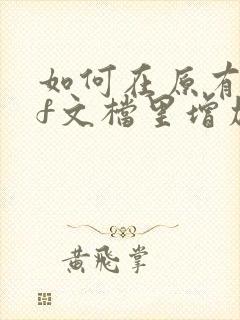 如何在原有
f文檔里增加
黄飛掌